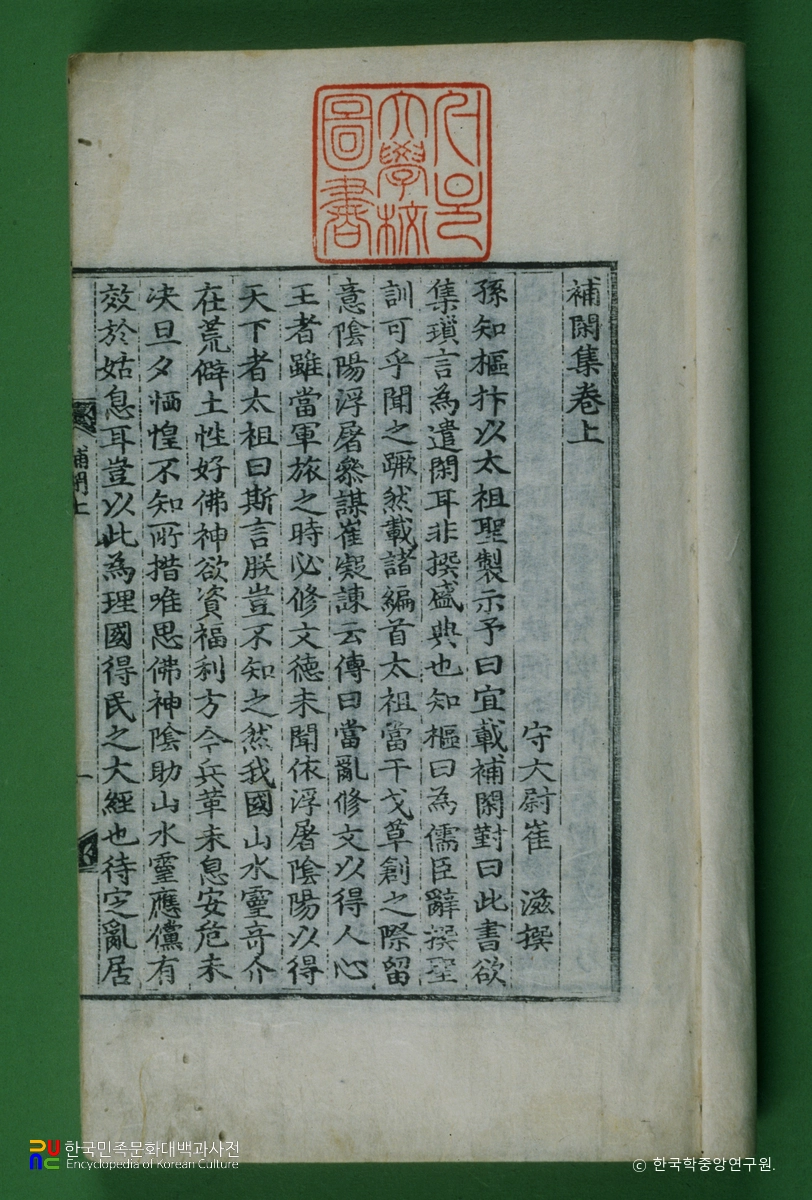 補閑集卷上
守大尉崔 滋撰
孫知樞抃以太祖聖製示予曰宜載補閑對曰此書欲
集瑣言為遣閑耳非撰盛典也知樞曰為儒臣辭撰聖
訓可乎聞之蹶然載諸編首太祖當干戈草創之際留
意陰陽浮屠叅謀崔凝諫云傳曰當亂修文以得人心
王者雖當軍旅之時必修文德未聞依浮屠陰陽以得
天下者太祖曰斯言朕豈不知之然我國山水靈奇介
在荒僻土性好佛神欲資福利方今兵革未息安危未
决旦夕恓惶不知所措唯思佛神陰助山水靈應儻有
效於姑息耳豈以此為理國得民之大經也待定亂居
補閑上
一
大學校
圖書
한국민족문화대백과사전
Encyclopedia of Korean Culture
© 한국학중앙연구원.